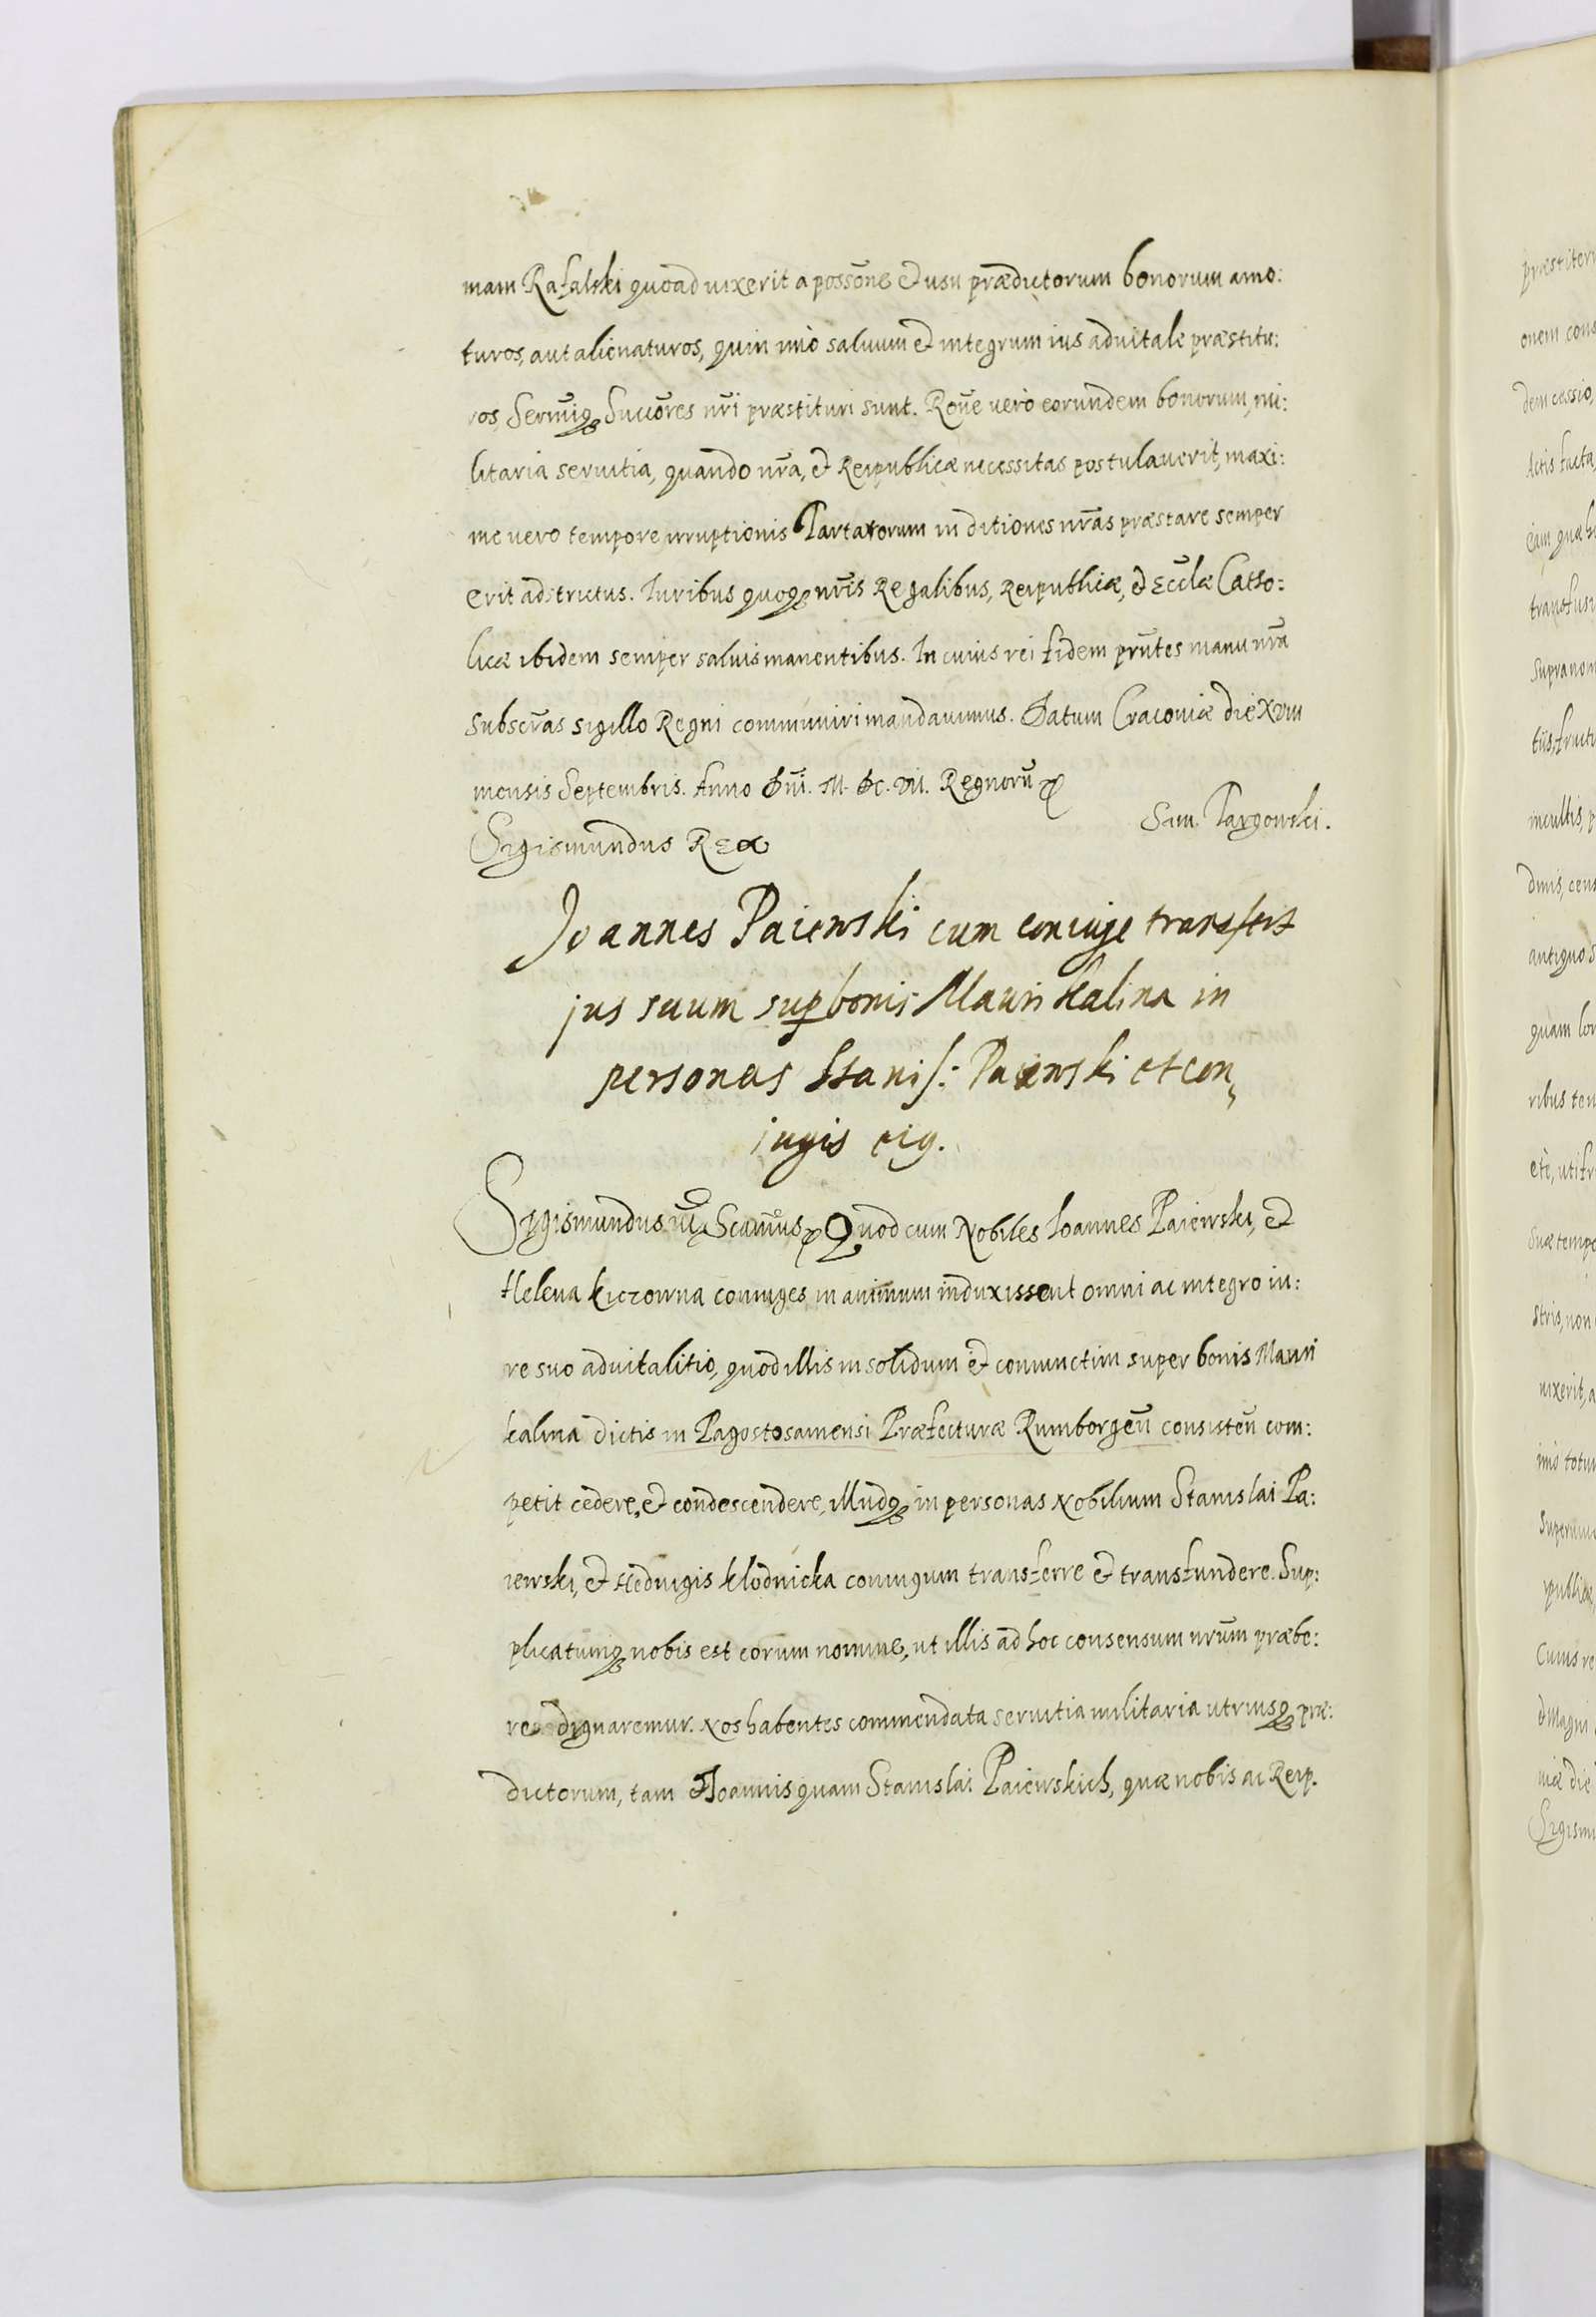 mam Rafalski quoad uixerit a possõne et usu prædictorum bonorum amo:
turos, aut alienaturos, quin imò saluum et integrum ius aduitale præstitu:
ros, Sermĩq; Succõres nr̃i præstituri sunt. Roñe uerò eorundem bonorum, mi:
litaria seruitia, quando nr̃a, et Reipublicæ necessitas postulauerit, maxi:
me uero tempore irruptionis Tartarorum in ditiones nr̃as præstare semper
erit adstrictus. Iuribus quoq; nr̃is Regalibus, Reipublicæ, et Eccłæ Catho:
licæ ibidem semper saluis manentibus. In cuius rei fidem prñtes manu nr̃a
subscr̃as sigillo Regni communiri mandauimus. Datum Cracouiæ die XVIII
mensis Septembris. Anno Dñi. M. DC. VII. Regnorũ
Sam. Targowski.
Sigismundus Rex
Joannes Paiewski cum coniuge transfert
jus suum sup bonis Mauri Kalina in
personas Stanisł: Paiewski et con,
iugis eig.
Sigismundus iii Scamũs Quod cum Nobiles Ioannes Paiewski, et
Helena Kiczowna coniuges in animum induxissent omni ac integro iu:
re suo aduitalitio, quod illis in solidum et coniunctim super bonis Mauri
kalina dictis in Pagostosamensi Præfecturæ Rumborgeñ consisteñ com:
petit cedere, et condescendere, illudq; in personas Nobilium Stanislai Pa:
iewski, et Heduigis Klodnicka coniugum transferre et transfundere. Sup:
plicatumq; nobis est eorum nomine, ut illis ad hoc consensum nr̃um præbe:
re dignaremur. Nos habentes commendata seruitia militaria utriusq; præ:
dictorum, tam Joannis quam Stanislai Paiewskich, quæ nobis ac Reip.